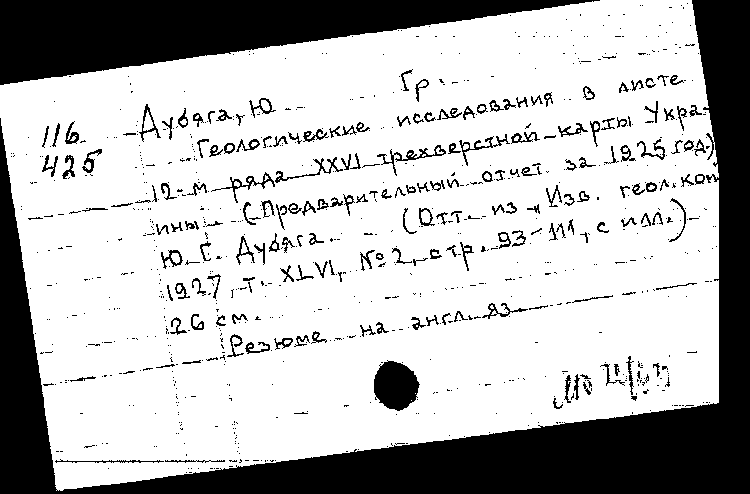 116
425
Дубяга, Ю. Гр.
Геологические исследования в листе
12-м ряда XXVI трехверстной карты Укра-
ины. (Предварительный отчет за 1925 год.)
Ю. Г. Дубяга. - (Отт. из „Изв. геол. ком
1927, т. XLVI, № 2, стр. 93-111, с илл.)
26 см.
Резюме на англ. яз.